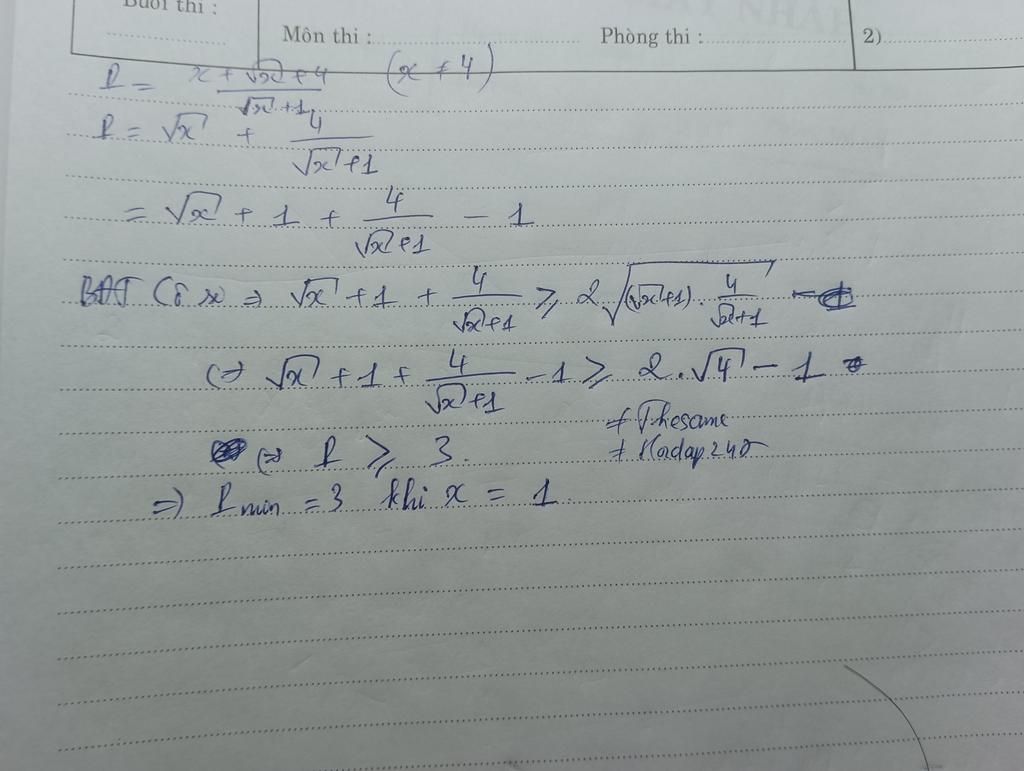 Buổi thi :
Môn thi : Phòng thi : 2)
P = (x + √x + 4)/(√x + 1) (x ≠ 4)
P = √x + 4/(√x + 1)
= √x + 1 + 4/(√x + 1) - 1
BĐT Cô si ⇒ √x + 1 + 4/(√x + 1) ≥ 2√((√x + 1) . 4/(√x + 1))
⇔ √x + 1 + 4/(√x + 1) - 1 ≥ 2.√4 - 1
⇔ P ≥ 3.
# Thesame
# Hoidap247
⇒ P min = 3 khi x = 1